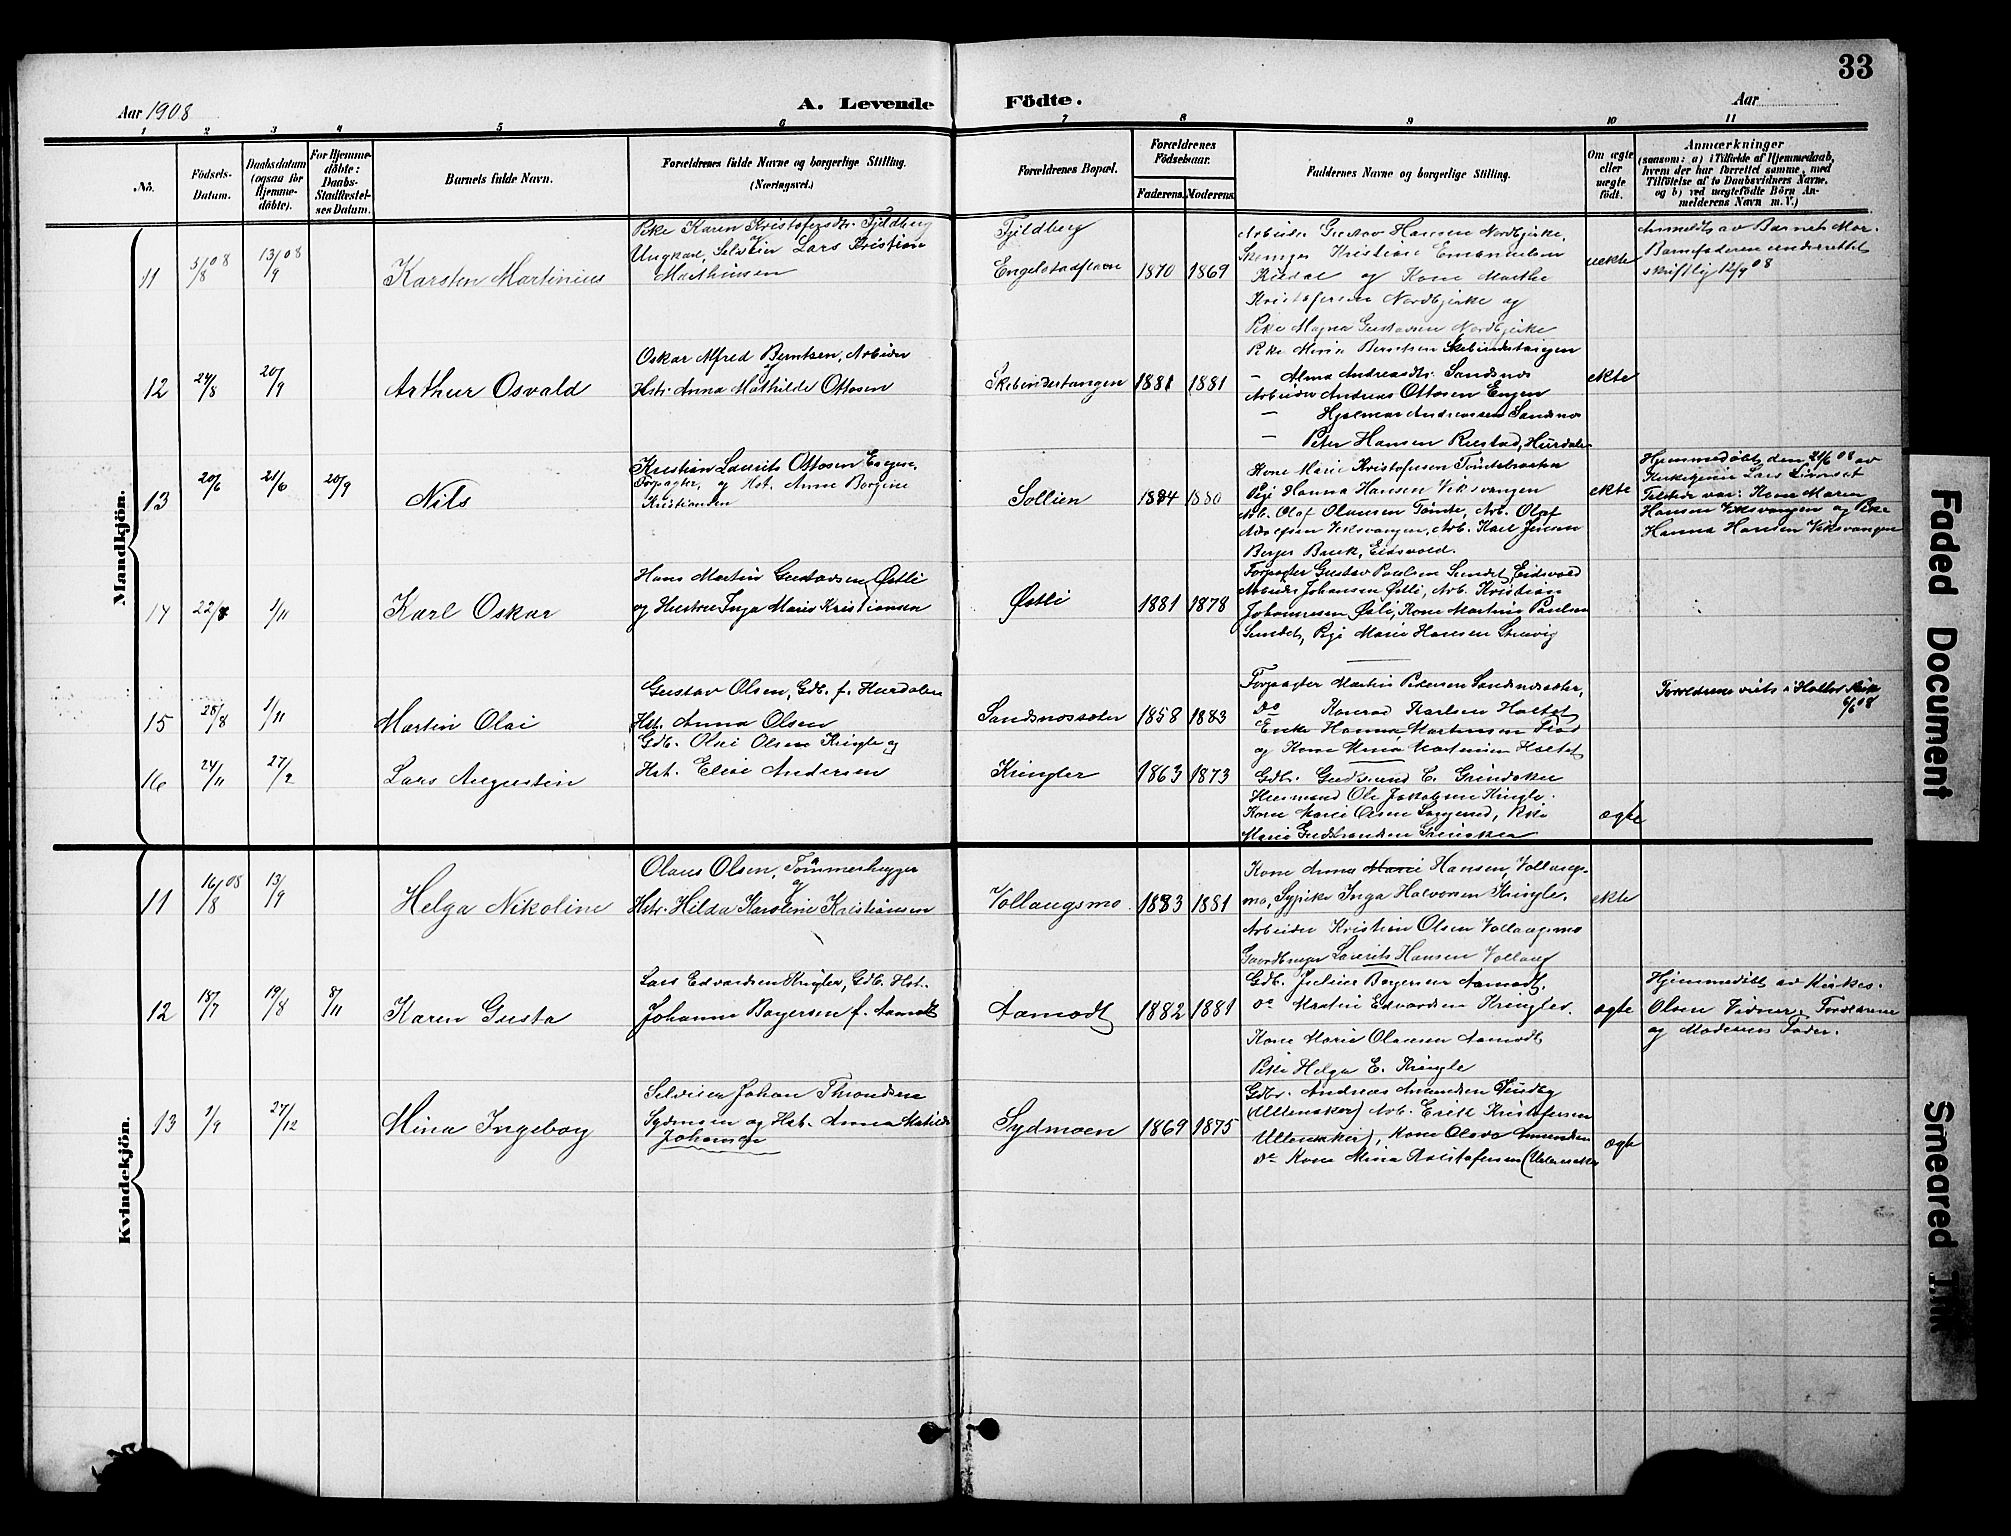 33
Aar 1908
A. Levende
Födte.
Aar
1 2 3 4 5 6 7 8 9 10 11
No.
Födsels-Datum.
Daabsdatum (ogsaa for Hjemme-döbte).
For Hjemme-döbte: Daabs-Stadfæstel-ses Datum.
Barnets fulde Navn.
Forældrenes fulde Navne og borgerlige Stilling.
(Næringsvei.)
Forældrenes Bopæl.
Forældrenes Födselsaar.
Faderens. Moderens.
Faddernes Navne og borgerlige Stilling.
Om ægte eller uægte födt.
Anmærkninger
(saasom: a) i Tilfælde af Hjemmedaab,
hvem der har forrettet samme, med
Tilföielse af to Daabsvidners Navne,
og b) ved uægtefödte Börn An-
melderens Navn m. V.)
Mandkjön.
11 3/8 08 13/9 08 Karsten Martinius
Pike Karen Kristofersdtr. Fjeldberg
Ungkarl, Selveier Lars Kristian
Mathiesen
Fjeldberg
1870 1869
Arbeider Gustav Hansen Nordbjirke,
Kristian Emanuelsen
og Kone Marthe
Kristofersen Nordbjirke og
Pike Magna Gustavsen Nordbjirke
uekte
Anmeldt av Barnets Mor.
Barnefaderen underrettet
skriftlig 12/9 08
12 24/8 20/9 Arthur Osvald
Oskar Alfred Berntsen, Arbeider
og
Hstr. Anna Mathilde Ottosen
Skibinderstangen 1881 1881
Pike Mina Berntsen Skibinderstangen
- Alma Andreasdtr. Sandsnos
Arbeider Andreas Ottosen Engen
- Hjalmar Andreassen Sandsnos
- Peter Hansen Rustad, Hurdalen
ekte
13 20/6 21/6 20/9 Nils
Kristian Laurits Ottosen Engen,
Forpagter, og Hst. Anne Borgine
Kristiansen
Sollien 1884 1880
Kone Marie Kristofersen Tömtebraaten
Pige Hanna Hansen Viksvangen
Arb. Olaf Olausen Tömte, Arb. Olaf
Adolfsen Viksvangen, Arb. Karl Jensen
Berger Bruk, Eidsvold.
ekte
Hjemmedöbt den 21/6 08 av
Kirkesjener Lars
Tilstede var: Kone Maren
Hansen Viksvangen og Pike
Hanna Hansen Viksvangen
14 22/8 1/11 Karl Oskar
Hans Martin Gustavsen Östli
og Hustru Inga Marie Kristiansen
Östli 1881 1878
Forpagter Gustav Paulsen Sundet, Eidsvold
Arbeider Johansen Östli, Arb. Kristian
Johannesen Östli, Kone Martine Paulsen
Sundet, Pige Marie Hansen
15 28/8 1/11 Martin Olai
Gustav Olsen, Gdb. f. Hurdalen
Hst. Anna Olsen
Sandsnossæter 1858 1883
Forpagter Martin Pedersen Sandsnossæter,
do Konrad Karlsen Holtet
Enke Hanna Martinsen
og Kone Mina Martinsen Holtet
Forældrene viet i Holter Kirke
6/6 08
16 24/11 27/2 Lars Augustin
Gdb. Olai Olsen Kringler og
Hst. Elise Andersen
Kringler 1863 1873
Gdb. Gudmund E. Grindaker
Husmand Ole Jakobsen Kringle.
Kone Marie Olsen, Pike
Marie Gudbrandsen Grinaker
ægte
Kvindekjön.
11 16/8 08 13/9 Helga Nikoline
Olaus Olsen, Tömmerhugger
og
Hstr. Hilda Karoline Kristiansen
Vollaugsmo 1883 1881
Kone Anna Marie Hansen, Vollaugs-
mo, Sypike Inga Halvorsen Kringler.
Arbeider Kristian Olsen Vollaugsmo
Gaardbruger Laurits Hansen Vollaug
ekte
12 18/7 19/8 8/11 Karen Gusta
Lars Edvardsen Kringler, Gdb. Hst.
Johanne Borgersen f. Aamodt
Aamodt 1882 1881
Gdb. Julius Borgersen Aamodt.
do Martin Edvardsen Kringler.
Kone Marie Olausen Aamodt
Pike Helga E. Kringle
ægte
Hjemmedöbt av Kirkes.
Olsen Vidner: Forældrene
og Moderens Fader.
13 1/9 27/12 Mina Ingeborg
Selveier Johan Throndsen
Sydmoen og Hst. Anna Matilde
Johansen
Sydmoen 1869 1875
Gdbr. Andreas Amundsen
(Ullensaker) Arb. Erik Kristofersen
Ullensaker), Kone Olava Amundsen
do Kone Mina Kristofersen (Ullensaker
ægte
Faded Document
Smeared Ink